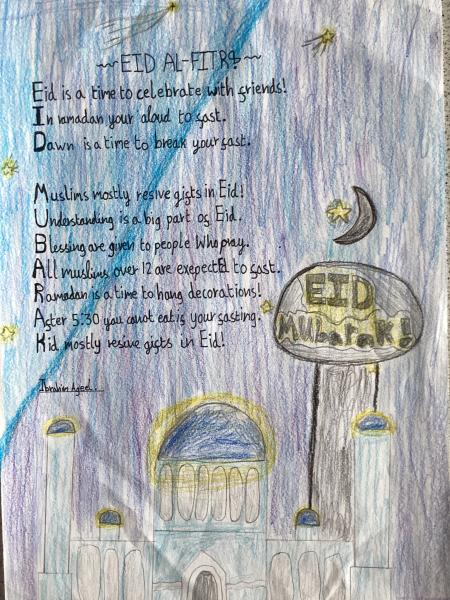 ~EID AL-FITR!~
Eid is a time to celebrate with friends!
In ramadan your aloud to fast.
Dawn is a time to break your fast.
Muslims mostly resive gifts in Eid!
Understanding is a big part of Eid.
Blessing are given to people Who pray.
All muslims over 12 are exepected to fast.
Ramadan is a time to hang decorations!
After 5:30 you canot eat is your fasting.
Kid mostly resive gifts in Eid!
Ibrahim
EID
Mubarak!